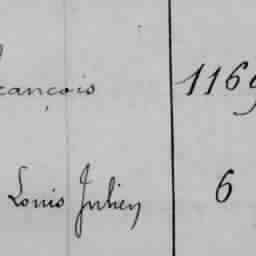 ançois 1169
Louis Julien 6